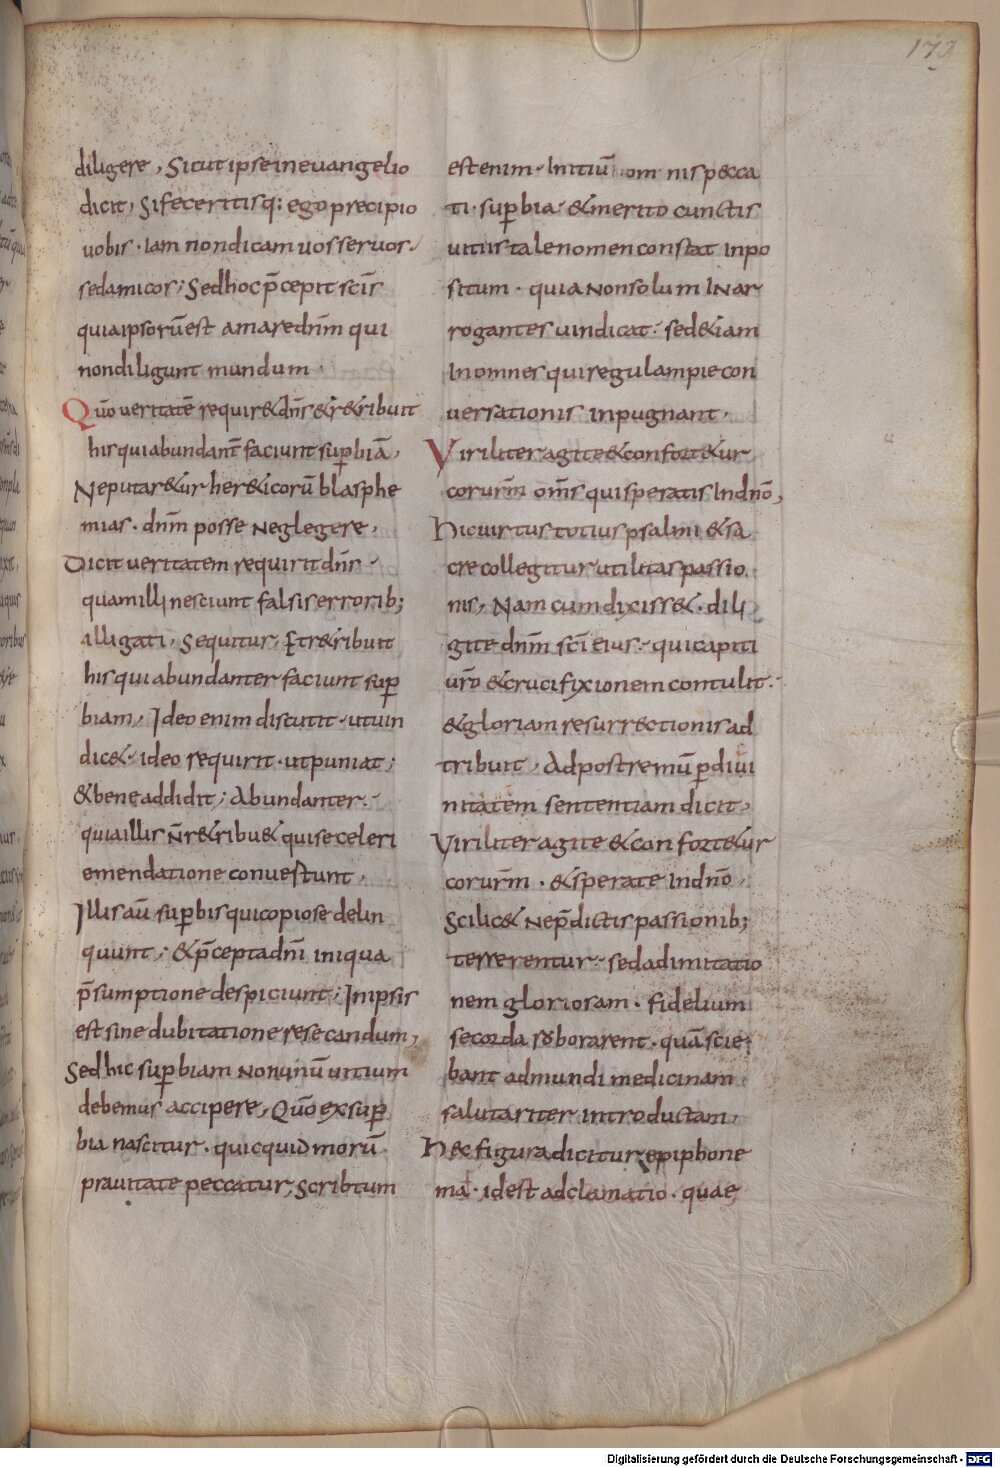 172
diligere, Sicut ipse in euangelio
dicit, Si feceritis q: ego precipio
uobis · Iam non dicam uos seruos ·
sed amicos; Sed hoc p̄cepit sc̄is
quia ipsorū est amare dn̄m qui
non diligunt mundum ·
Qūo ueritatē requir& dn̄s & r&ribuit
his qui abundant̄ faciunt sup̱biā,
Ne putar&ur her&icorū blasphe
mias · dn̄m posse neglegere,
Dicit ueritatem requirit dn̄s ·
quam illi nesciunt falsis errorib;
alligati, Sequitur, Et r&ribuit
his qui abundanter faciunt sup̱
biam, Ideo enim discutit · ut uin
dic& · ideo requirit · ut puniat;
& bene addidit; Abundanter ·
quia illis n̄ r&ribu& qui se celeri
emendatione conuestunt,
Illis aū sup̱bis qui copiose delin
quunt; & p̄cepta dn̄i iniqua
p̄sumptione despiciunt; In ipsis
est sine dubitatione resecandum,
Sed hic sup̱biam non unū uitium
debemus accipere, Qūo ex sup̱
bia nascitur · quicquid morū
prauitate peccatur, Scribtum
est enim · Initiū om nis pecca
ti · sup̱bia · & merito cunctis
uitiis tale nomen constat inpo
situm · quia non solum in ar
rogantes uindicat · sed & iam
in omnes qui regulam pie con
uersationis inpugnant ·
Viriliter agite & confort&ur
cor ur̄m om̄s qui speratis in dn̄o,
Hic uirtus totius psalmi & sa
cre collegitur utilitas passio
nis, Nam cum dixiss& · dili
gite dn̄m sc̄i eius · qui capiti
ur̄o & crucifixionem contulit ·
& gloriam resurrectionis ad
tribuit, Ad postremū p̱ diui
nitatem sententiam dicit,
Viriliter agite & confort&ur
cor ur̄m · & sperate in dn̄o,
Scilic& ne p̄dictis passionib;
terrerentur · sed ad imitatio
nem gloriosam · fidelium
se corda roborarent · quā scie
bant ad mundi medicinam
salutariter introductam,
Hec figura dicitur epiphone
ma · id est adclamatio · quae
Digitalisierung gefördert durch die Deutsche Forschungsgemeinschaft - DFG